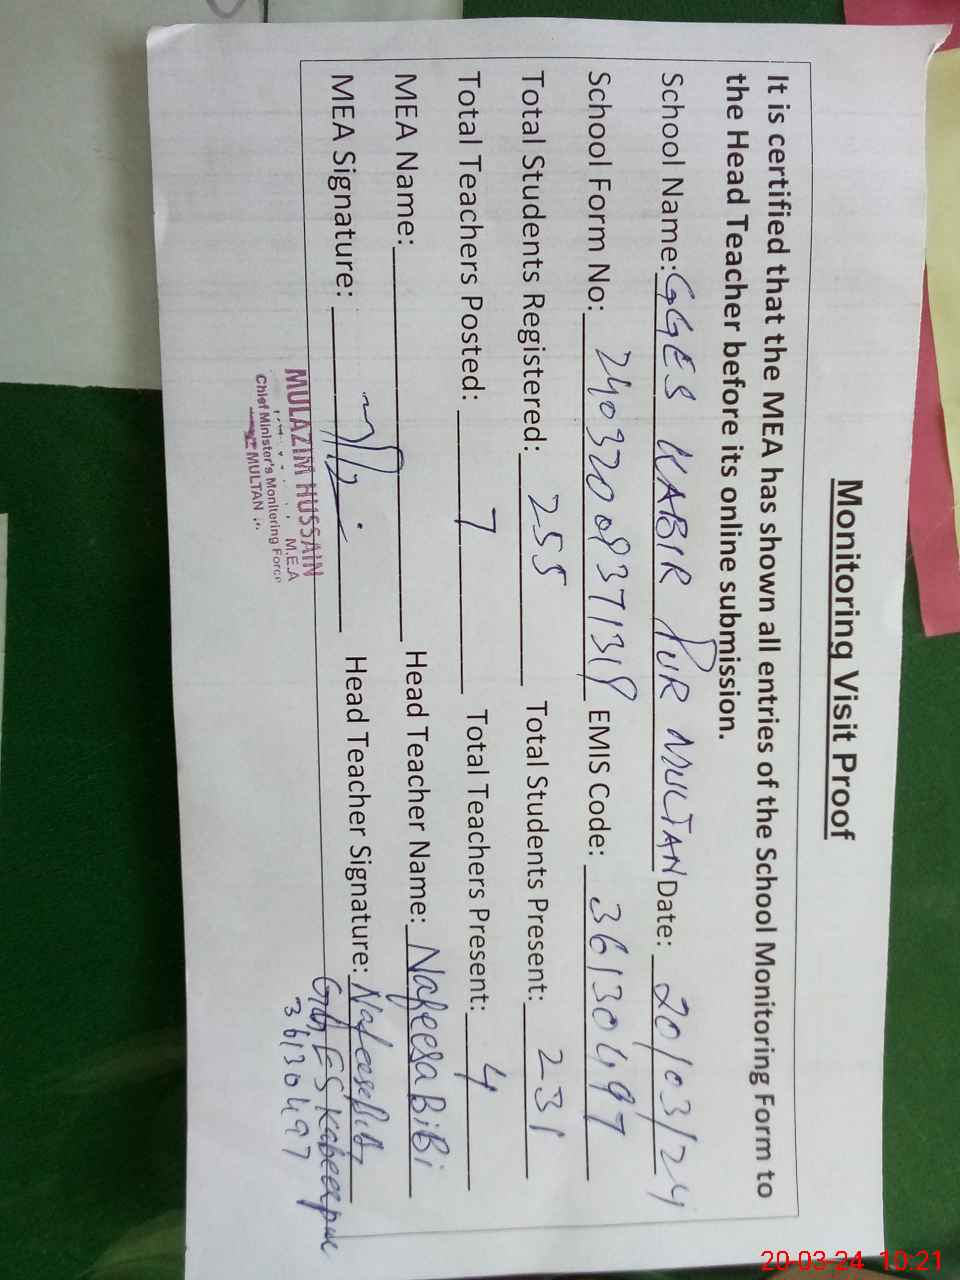 Monitoring Visit Proof
It is certified that the MEA has shown all entries of the School Monitoring Form to
the Head Teacher before its online submission.
School Name: GGES KABIR PUR MULTAN Date: 20/03/24
School Form No: 24032008371318 EMIS Code: 36130497
Total Students Registered: 255 Total Students Present: 231
Total Teachers Posted: 7 Total Teachers Present: 4
MEA Name: Head Teacher Name: Nafeesa BiBi
MEA Signature: Head Teacher Signature:
MULAZIM HUSSAIN
M.E.A
Chief Minister's Monitoring Force
MULTAN
36130497
20-03-24 10:21